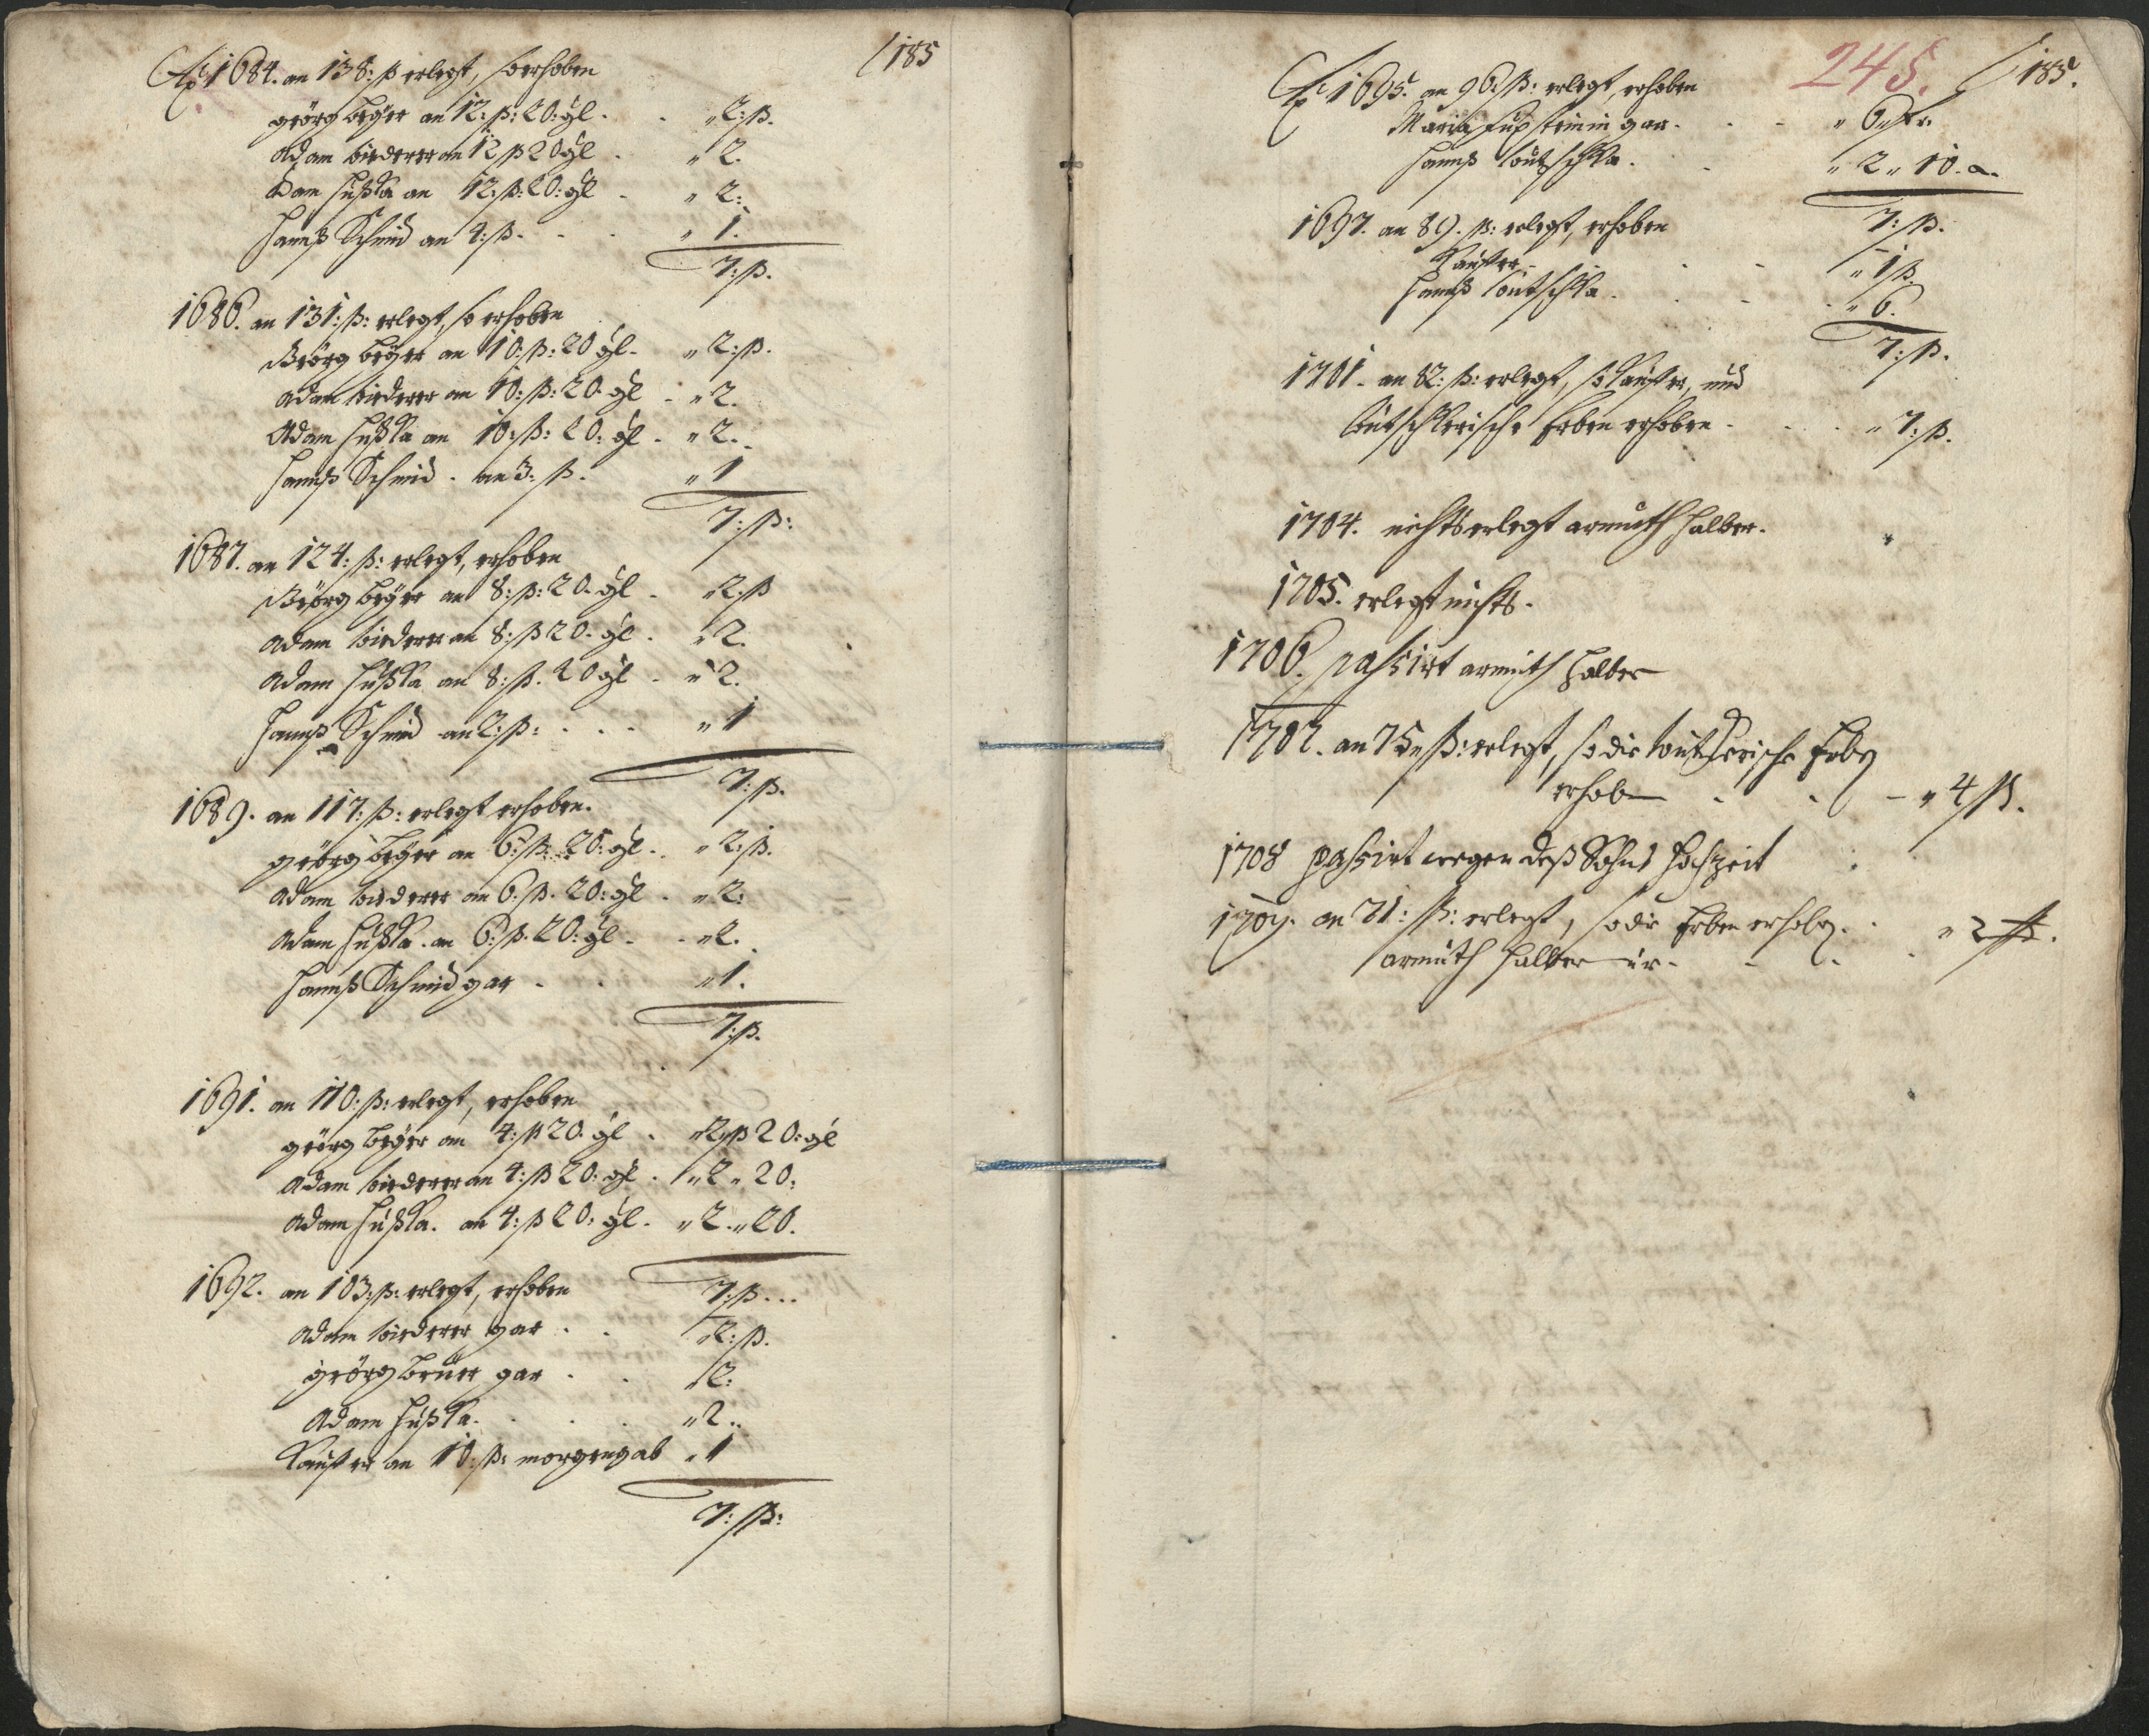 185
A͞o 1684. an 138: ß erlegt, so erhoben
geörg beÿer an 12: ß: 20: gl. . „2: ß.
Adam biederer an 12 ß 20 gl . „2.
Adam Hußka an 12: ß: 20: gl . „2:
Hannß Schmid an 4: ß. . . „1.
7: ß.
1686. an 131: ß: erlegt, so erhoben
Geörg beÿer an 10: ß: 20 gl. „2: ß.
Adam biederer an 10: ß: 20. gl . „2.
Adam Hußka an 10: ß: 20: gl . „2.
Hannß Schmid . an 3: ß. „1
7: ß:
1687. an 124: ß: erlegt, erhoben
Geörg beÿer an 8: ß: 20. gl . „2: ß
Adam biederer an 8: ß 20. gl . „2.
Adam Hußka an 8: ß. 20 gl . „2.
Hannß Schmid an 2: ß: . . . „1
7: ß.
1689. an 117: ß: erlegt erhoben.
geörg beÿer an 6: ß: 20: gl . „2: ß.
Adam biederer an 6. ß. 20: gl . „2:
Adam Hußka . an 6: ß. 20: gl . „2.
Hannß Schmid gar . . „1.
7: ß.
1691. an 110: ß: erlegt, erhoben
geörg beÿer an 4: ß 20. gl . „2„ß 20: gl
Adam biederer an 4: ß 20: gl . „2„20:
Adam Hußka. an 4: ß 20: gl. „2.„20.
7: ß...
1692. an 103: ß: erlegt, erhoben
Adam biederer gar . . „2: ß.
geörg beüer gar . . „2:
Adam Hußka. . . . „2..
Kauffer an 10: ß: morgengab „1
7: ß:
245. 185.
A͞o 1695. an 96: ß: erlegt, erhoben
Maria gar. . . „6„
Hannß . . „2„10.
7: ß.
1697. an 89. ß: erlegt, erhoben
Kauffer. . . „1 ß.
Hannß . . . „6.
7: ß.
1701. an 82: ß: erlegt, so Kauffer, und
Erben erhoben . . . „7: ß.
1704. nichts erlegt armuth halber.
1705. erlegt nichts.
1706. passirt armuth halber
1707. an 75„ß: erlegt, so die Erben
erhoben . . . „4 ß.
1708 passirt wegen deß Sohns Hochzeit
1709. an 71: ß: erlegt, so die Erben erhoben. . „2 ß.
armuth halber